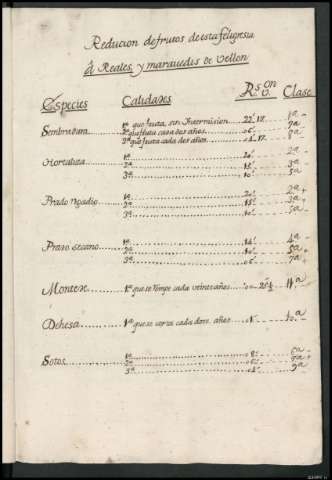 Reducion de frutos de esta feligresia
â Reales, y maravedis de Vellon
Especies Calidades Rs. Von. Clase
Sembradura 1ª que fruta, sin Intermision 22"
2ª que fruta cada dos años 7ª
3ª que fruta cada dos años 8ª
Hortaliza 1ª 20" 2ª
2ª 15" 3ª
3ª 10" 5ª
Prado Rgadio 1ª 20" 2ª
2ª 15" 3ª
3ª 10" 5ª
Prado secano 1ª 14" 4ª
2ª 10" 5ª
3ª 06" 7ª
Montes 1ª que se rompe cada veinte años 11ª
Dehesa 1ª que se corta cada doze años 10ª
Sotos 1ª 08" 6ª
2ª 06" 7ª
3ª 9ª